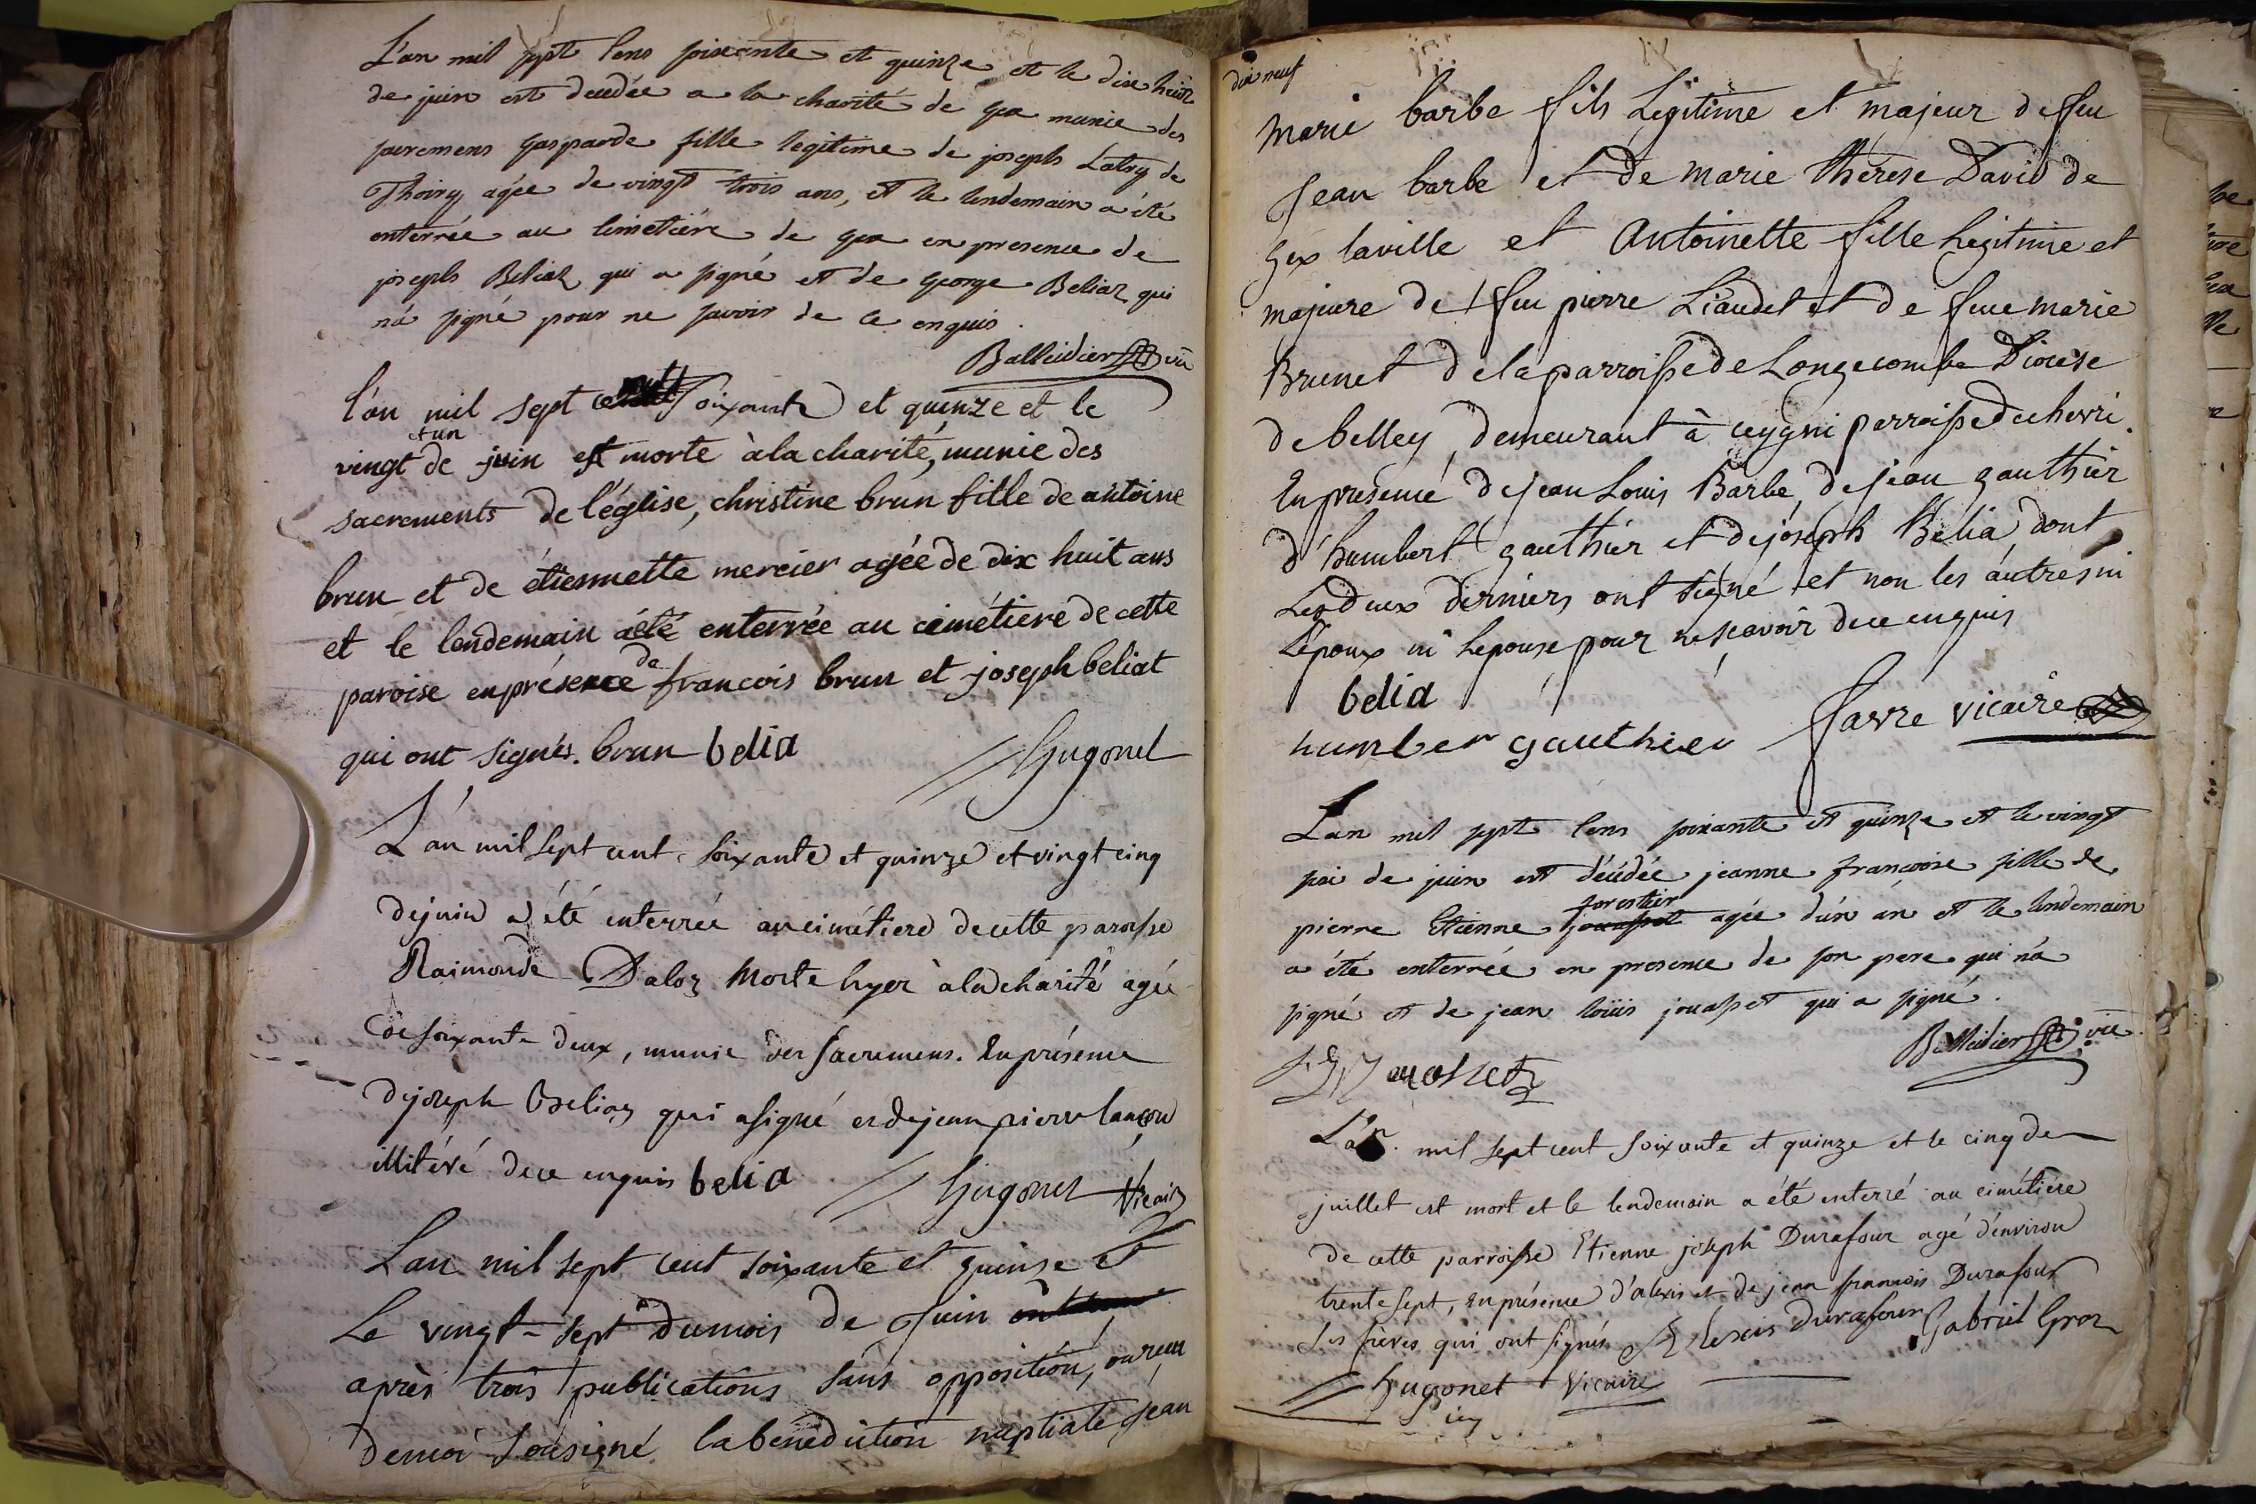 L'an mil sept cens soixante et quinze et le dix huit
de juin est decedée a la charité de Gex munie des
sacremens gasparde fille legitime de joseph Latry de
Thoiry agée de vingt trois ans, et le lendemain a été
enterrée au cimetiére de Gex en presence de
joseph Beliaz qui a signé et de George Beliaz qui
n'a signé pour ne savoir de ce enquis.
Balleidier vic
l'an mil sept cent soixante et quinze et le
vingt et un de juin est morte à la charité, munie des
sacrements de l'église, christine brun fille de antoine
brun et de étiennette mercier agée de dix huit ans
et le lendemain a été enterrée au cimétiere de cette
paroise en présence de francois brun et joseph beliat
qui ont signés. brun belia
Hugonet
L'an mil sept cent soixante et quinze et vingt cinq
de juin a été enterrée au cimétiere de cette paroisse
Raimonde Daloz morte hyer à la charité agée
de soixante deux, munie des sacremens. En présence
de joseph Beliaz qui a signé et de jean pierre lançon
illitéré de ce enquis belia
Hugonet Vicaire
L'an mil sept cent soixante et quinse et
Le vingt-sept du mois de Juin
après trois publications sans opposition, on reçu
de moi sousigné la bénédiction nuptiale Jean
dix neuf
Marie barbe fils Legitime et majeur de feu
Jean barbe et de marie thérese David de
Gex la ville et Antoinette fille legitime et
majeure de feu pierre Liaudet et de feue marie
Brunet de la parroisse de Longecombe Diocèse
de belley, demeurant à ceygni parroisse de chevri.
En presence de jean Louis Barbe, de jean gauthier
d'humbert gauthier et de joseph Bélia dont
Les deux derniers ont signé et non les autres ni
L'époux ni l'epouse pour ne sçavoir de ce enquis
belia
humber gauthier Favre vicaire
L'an mil sept cens soixante et quinze et le vingt
six de juin est décédée jeanne françoise fille de
pierre Etienne forestier agée d'un an et le lendemain
a été enterrée en presence de son pere qui n'a
signé et de jean loüis jouasset qui a signé.
Balleidier vic
J L Jouasset
L'an mil sept cent soixante et quinze et le cinq de
juillet est mort et le lendemain a été enterré au cimétiére
de cette parroisse Etienne joseph Durafour agé d'environ
trente sept, en présence d'alexis et de jean francois Durafour
ses freres qui ont signés Alexis durafour Gabriel Groz
Hugonet Vicaire